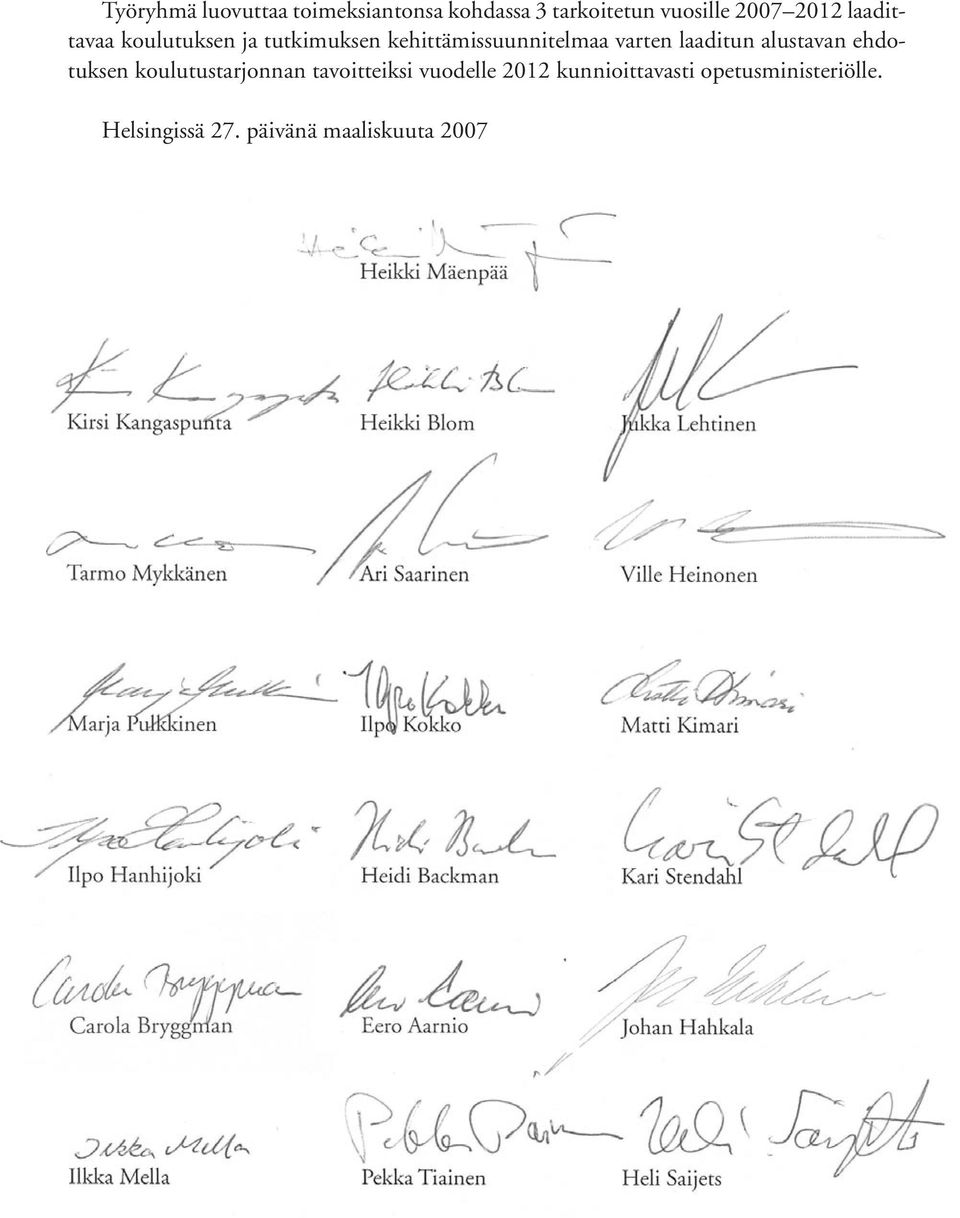 Työryhmä luovuttaa toimeksiantonsa kohdassa 3 tarkoitetun vuosille 2007–2012 laadit-
tavaa koulutuksen ja tutkimuksen kehittämissuunnitelmaa varten laaditun alustavan ehdo-
tuksen koulutustarjonnan tavoitteiksi vuodelle 2012 kunnioittavasti opetusministeriölle.
Helsingissä 27. päivänä maaliskuuta 2007
Heikki Mäenpää
Kirsi Kangaspunta Heikki Blom Jukka Lehtinen
Tarmo Mykkänen Ari Saarinen Ville Heinonen
Ilpo Kokko
Marja Pulkkinen Ilpo Kokko Matti Kimari
Ilpo Hanhijoki Heidi Backman Kari Stendahl
Ilpo Hanhijoki Heidi Backman Kari Stendahl
Carola Bryggman
Carola Bryggman Eero Aarnio Johan Hahkala
Ilkka Mella
Ilkka Mella Pekka Tiainen Heli Saijets